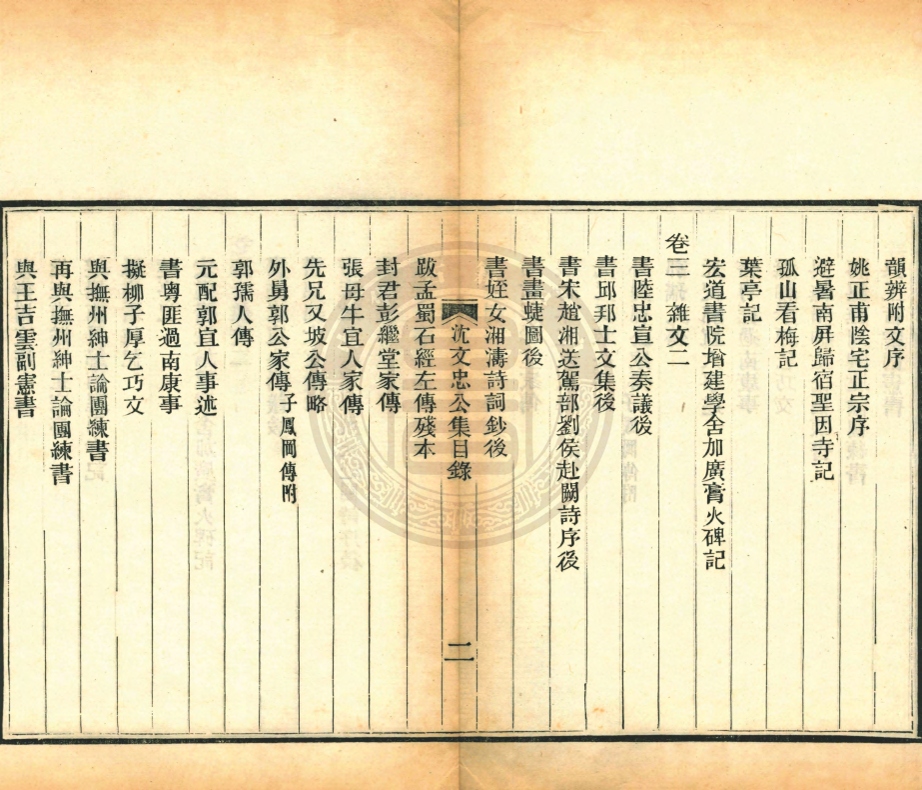 韻辨附文序
姚正甫陰宅正宗序
避暑南屏歸宿聖因寺記
孤山看梅記
葉亭記
宏道書院增建學舍加廣膏火碑記
卷三 雜文二
書陸忠宣公奏議後
書邱邦士文集後
書宋趙湘送駕部劉侯赴闕詩序後
書畫蜨圖後
書姪女湘濤詩詞鈔後
沈文忠公集目錄
二
跋孟蜀石經左傳殘本
封君彭繼堂家傳
張母牛宜人家傳
先兄又坡公傳略
外舅郭公家傳子鳳岡傳附
郭孺人傳
元配郭宜人事述
書粵匪過南康事
擬柳子厚乞巧文
與撫州紳士論團練書
再與撫州紳士論團練書
與王吉雲副憲書